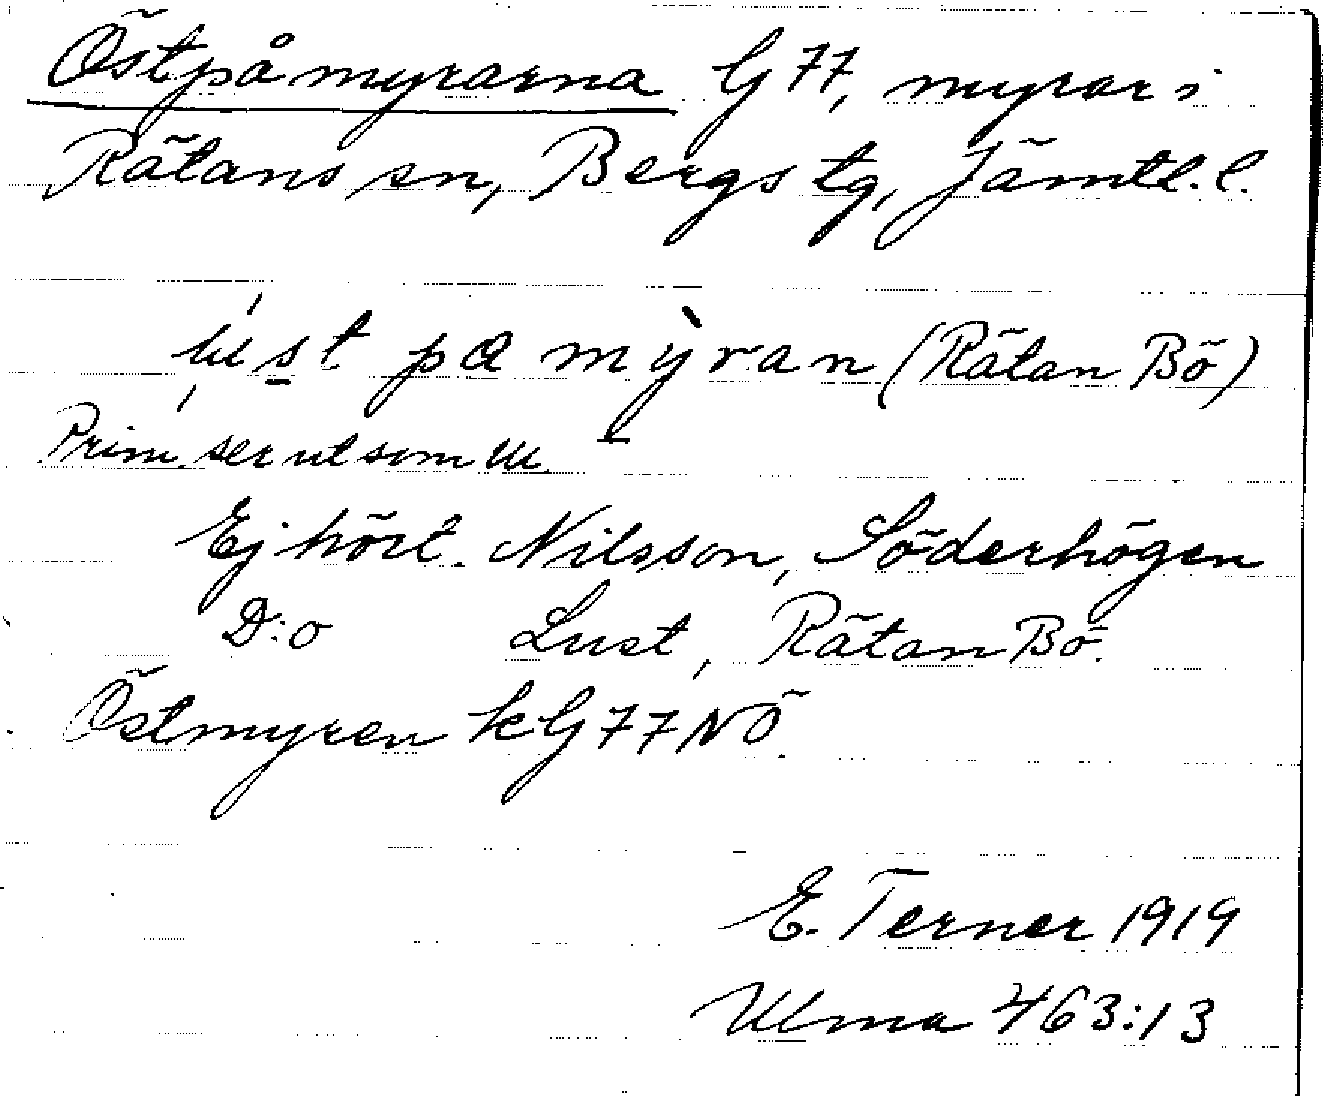 Östpåmyrarna G 77, myrar i
Rätans sn, Bergs tg, Jämtl. l.
st pa mỳran (Rätan Bö)
Prim. ser ut som ɯ
Ej hört. Nilsson, Söderhögen
D:o Lust, Rätan Bö.
Östmyren kG 77 NÖ.
E. Terner 1919
Ulma 463:13